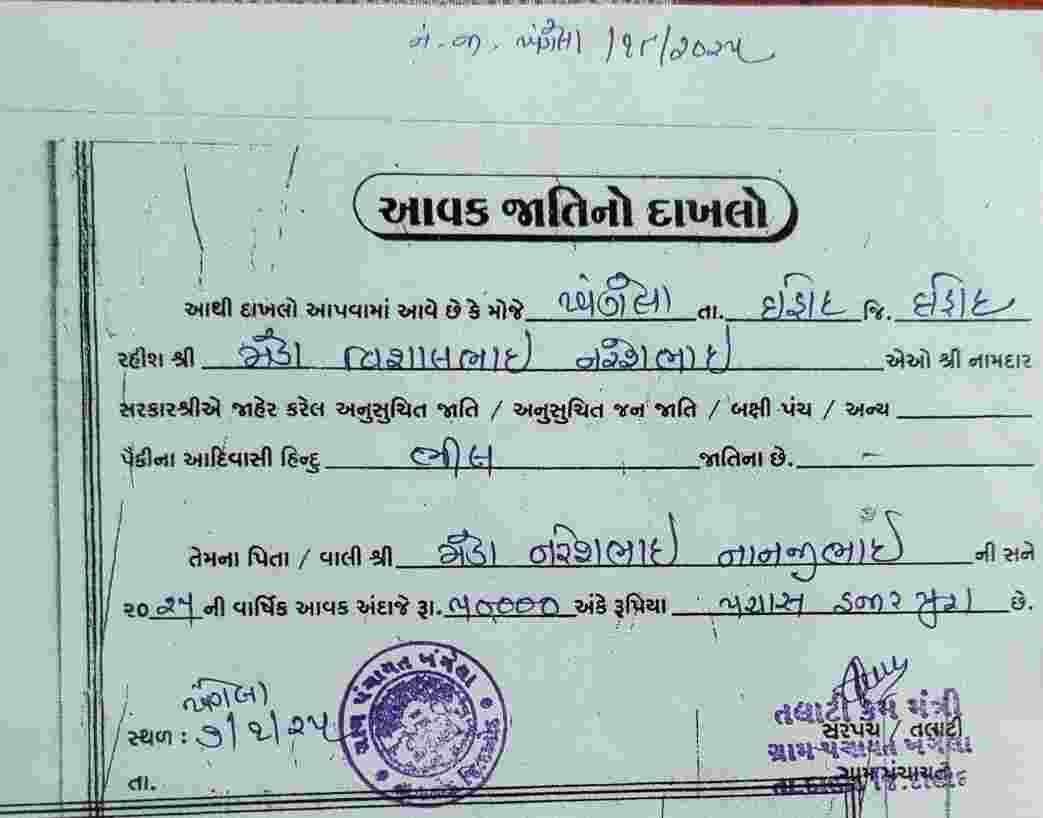 ને. જા. ખંગેલા /૧૮/૨૦૨૫
આવક જાતિનો દાખલો
આથી દાખલો આપવામાં આવે છે કે મોજે ખંગેલા તા. દાહોદ જિ. દાહોદ
રહીશ શ્રી મેડા વિશાલભાઇ નરેશભાઇ એઓ શ્રી નામદાર
સરકારશ્રીએ જાહેર કરેલ અનુસુચિત જાતિ / અનુસુચિત જન જાતિ / બક્ષી પંચ / અન્ય
પૈકીના આદિવાસી હિન્દુ ભીલ જાતિના છે. -
તેમના પિતા / વાલી શ્રી મેડા નરેશભાઇ નાનજીભાઈ ની સને
૨૦૨૫ ની વાર્ષિક આવક અંદાજે રૂા. ૫૦૦૦૦ અંકે રૂપિયા પચાસ હજાર પુરા છે.
ખંગેલા
સ્થળ : ૭/૨/૨૫
તા.
ગ્રામ પંચાયત ખંગેલા
તલાટી કમ મંત્રી
સરપંચ / તલાટી
ગ્રામ પંચાયત ખંગેલા
ગ્રામ પંચાયત